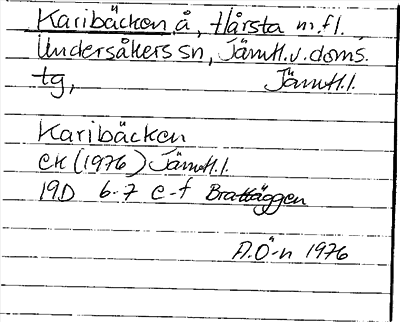 Karibäcken å, Hårsta m.fl.
Undersåkers sn, Jämtl. v. doms.
tg, Jämtl. l.
Karibäcken
ek (1976) Jämtl. l.
19D 6-7 e-f Brattäggen
A.Ö-n 1976